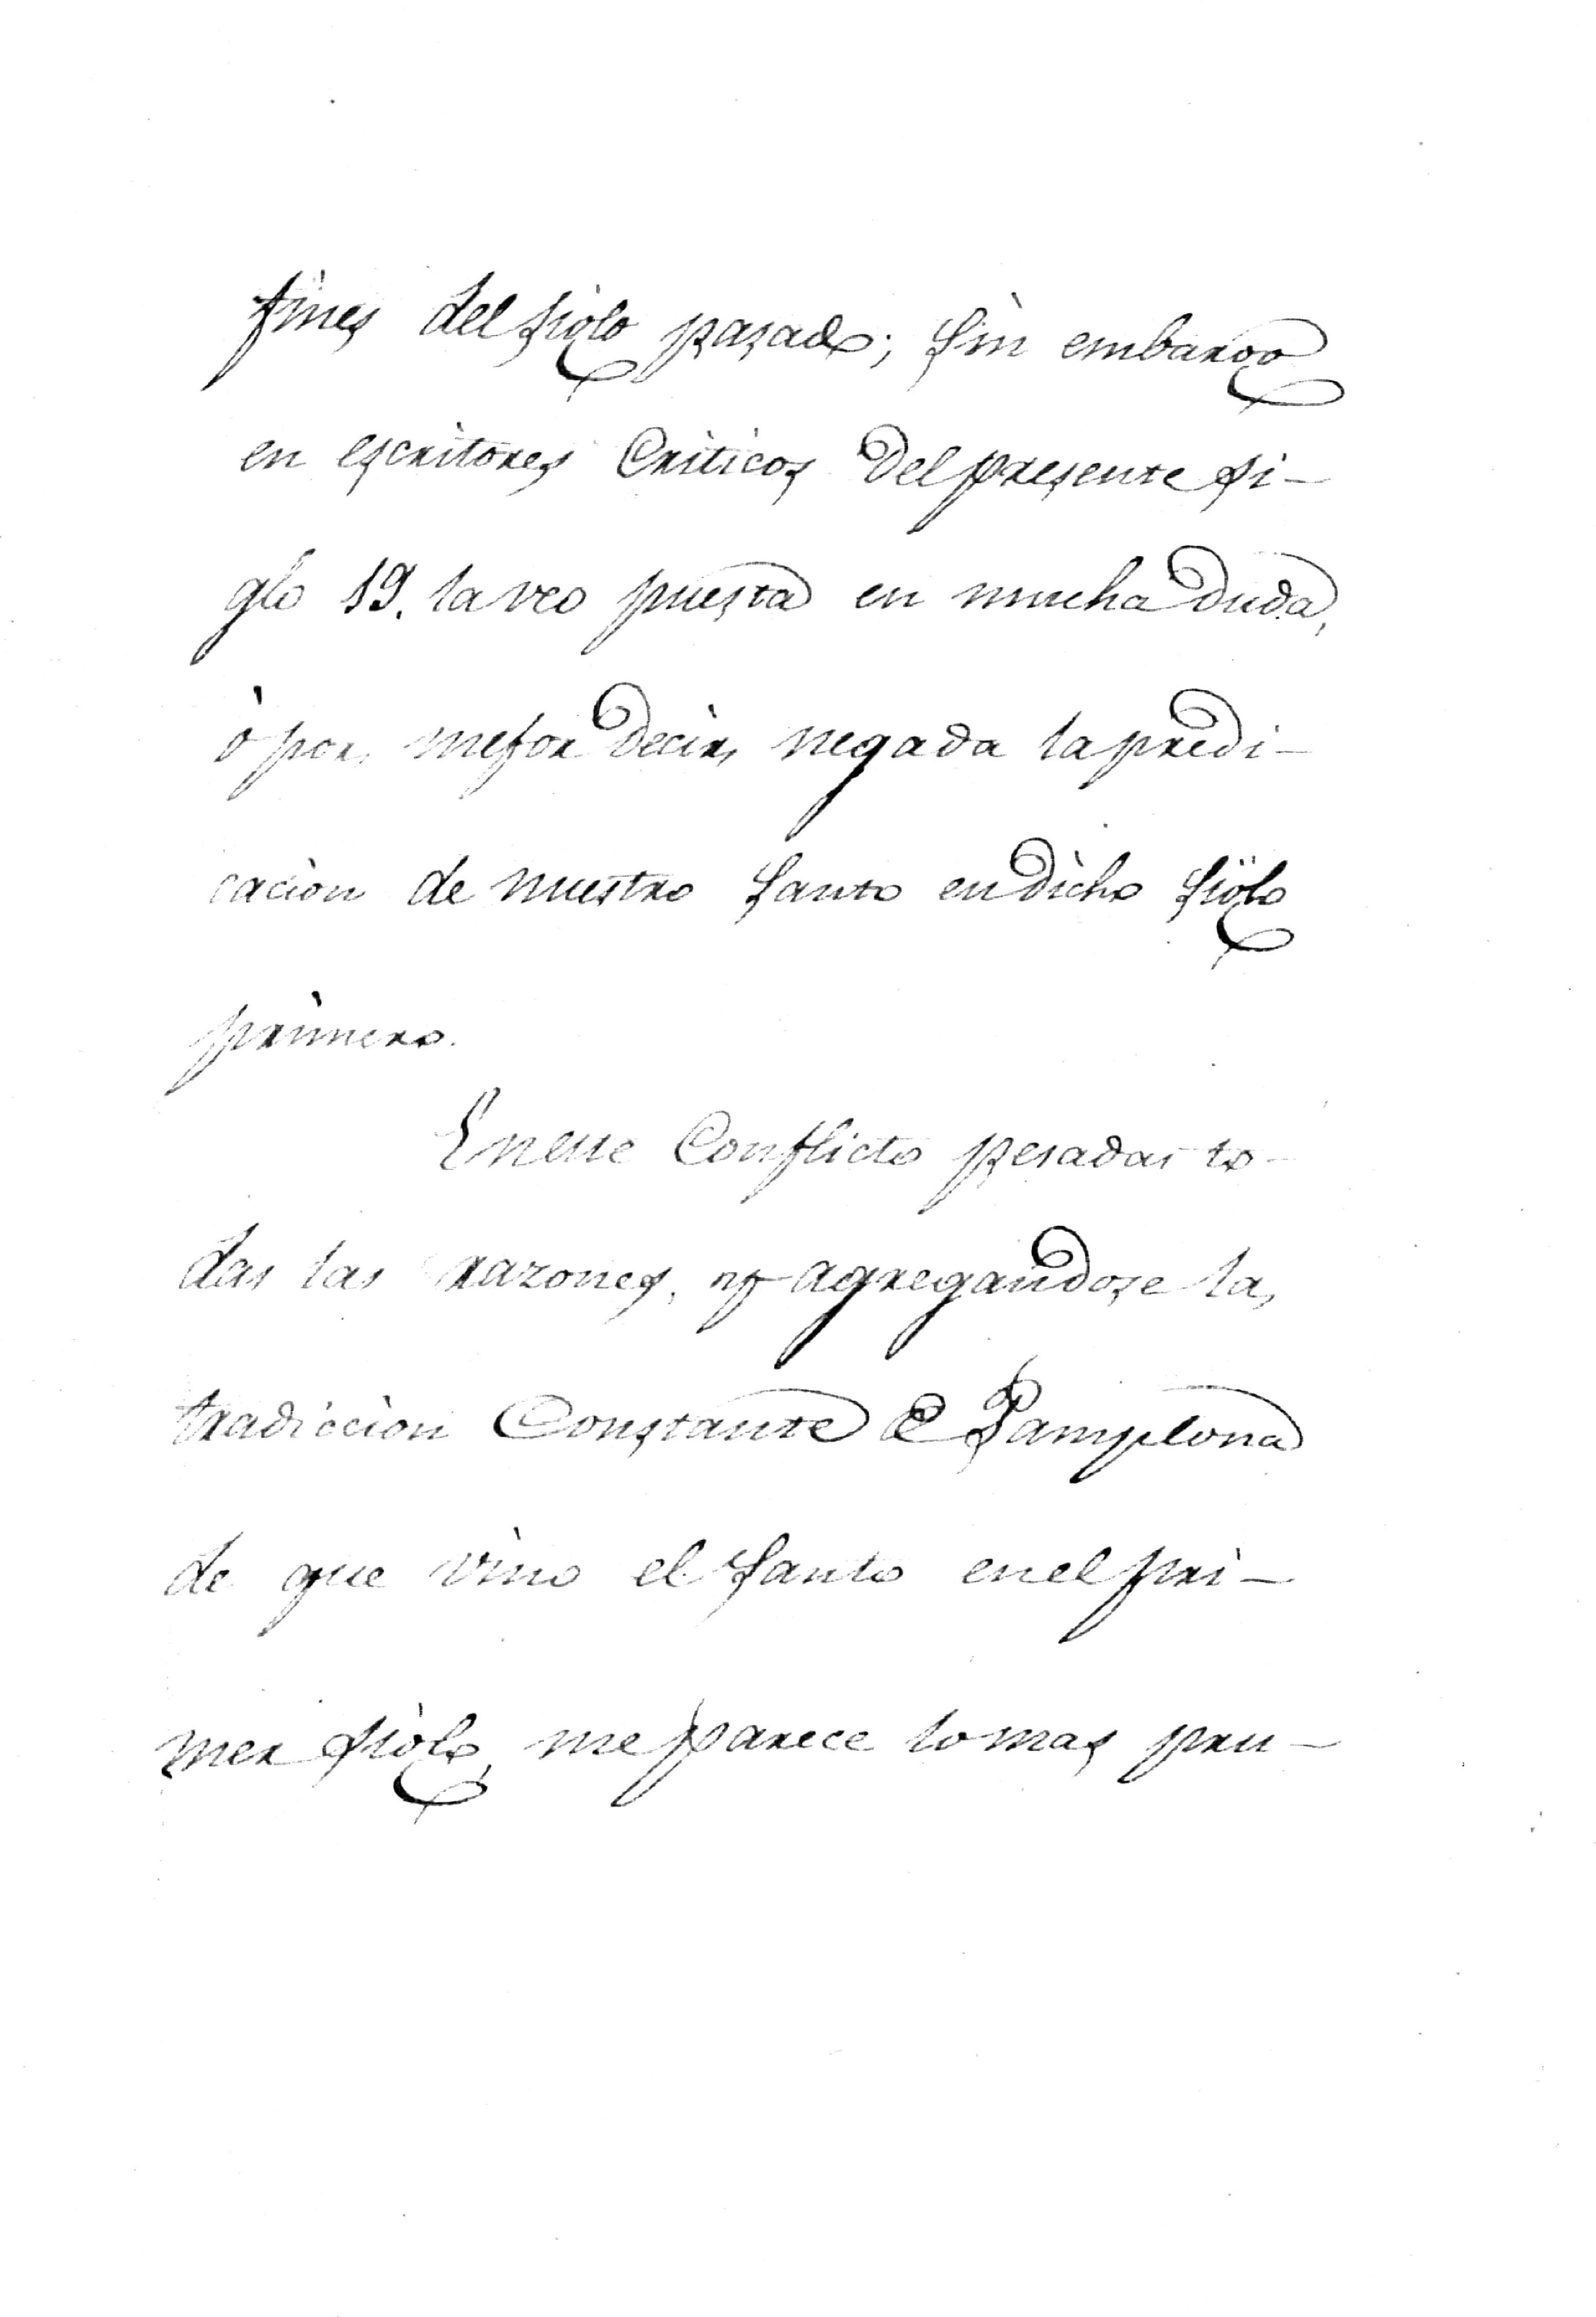 fines del siglo pasado; sin embargo
en escritores Criticos del presente si-
glo 19. la veo puesta en mucha duda,
ò por mejor decir, negada la predi-
caciòn de nuestro Santo en dicho siglo
primero.
En este Conflicto pesadas to-
das las razones, y agregandose la
tradiccion Constante de Pamplona
de que vino el Santo en el pri-
mer siglo, me parece lo mas pru-